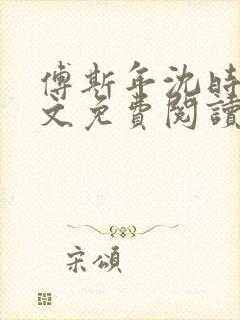 傅斯年沈時
文免費閱讀
宋頌